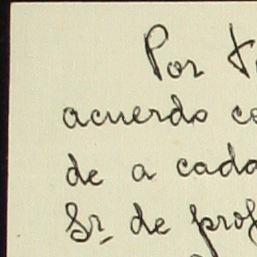 Por
acuerdo
de a cada
Sr. de